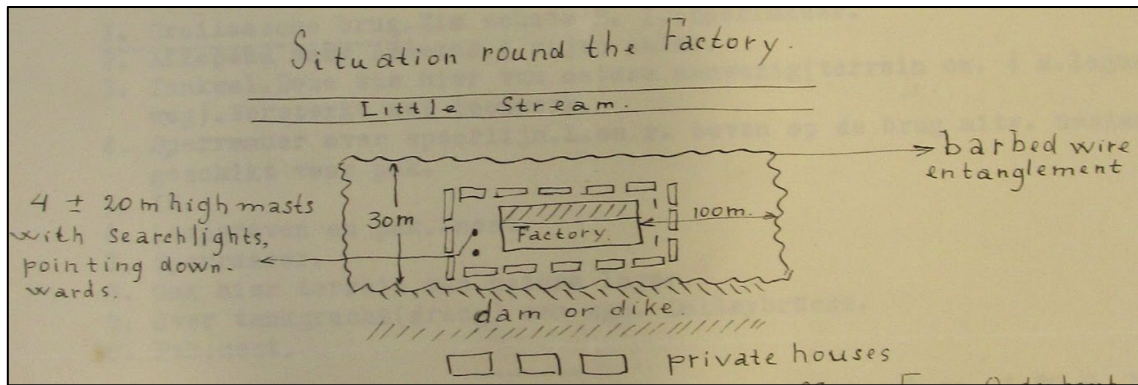 Situation round the Factory.
Little Stream.
barbed wire
entanglement
4 ± 20 m high masts
with searchlights,
pointing down-
wards.
30m
100m.
Factory.
dam or dike.
private houses